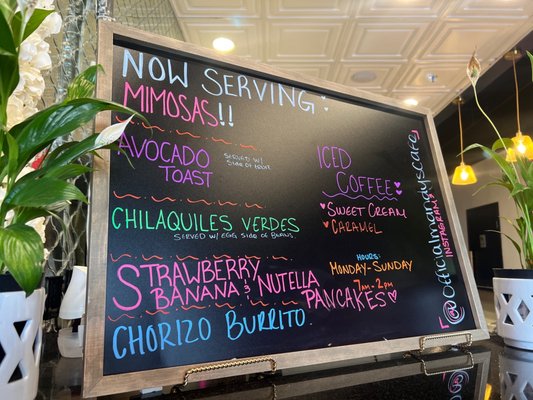 NOW SERVING
MIMOSAS!!
AVOCADO
TOAST
SERVED W/
SIDE OF FRUIT
CHILAQUILES VERDES
SERVED W/ EGG SIDE OF BEANS
STRAWBERRY
BANANA & NUTELLA
PANCAKES
CHORIZO BURRITO.
ICED
COFFEE
SWEET CREAM
CARAMEL
HOURS:
MONDAY-SUNDAY
7AM-2PM
INSTAGRAM